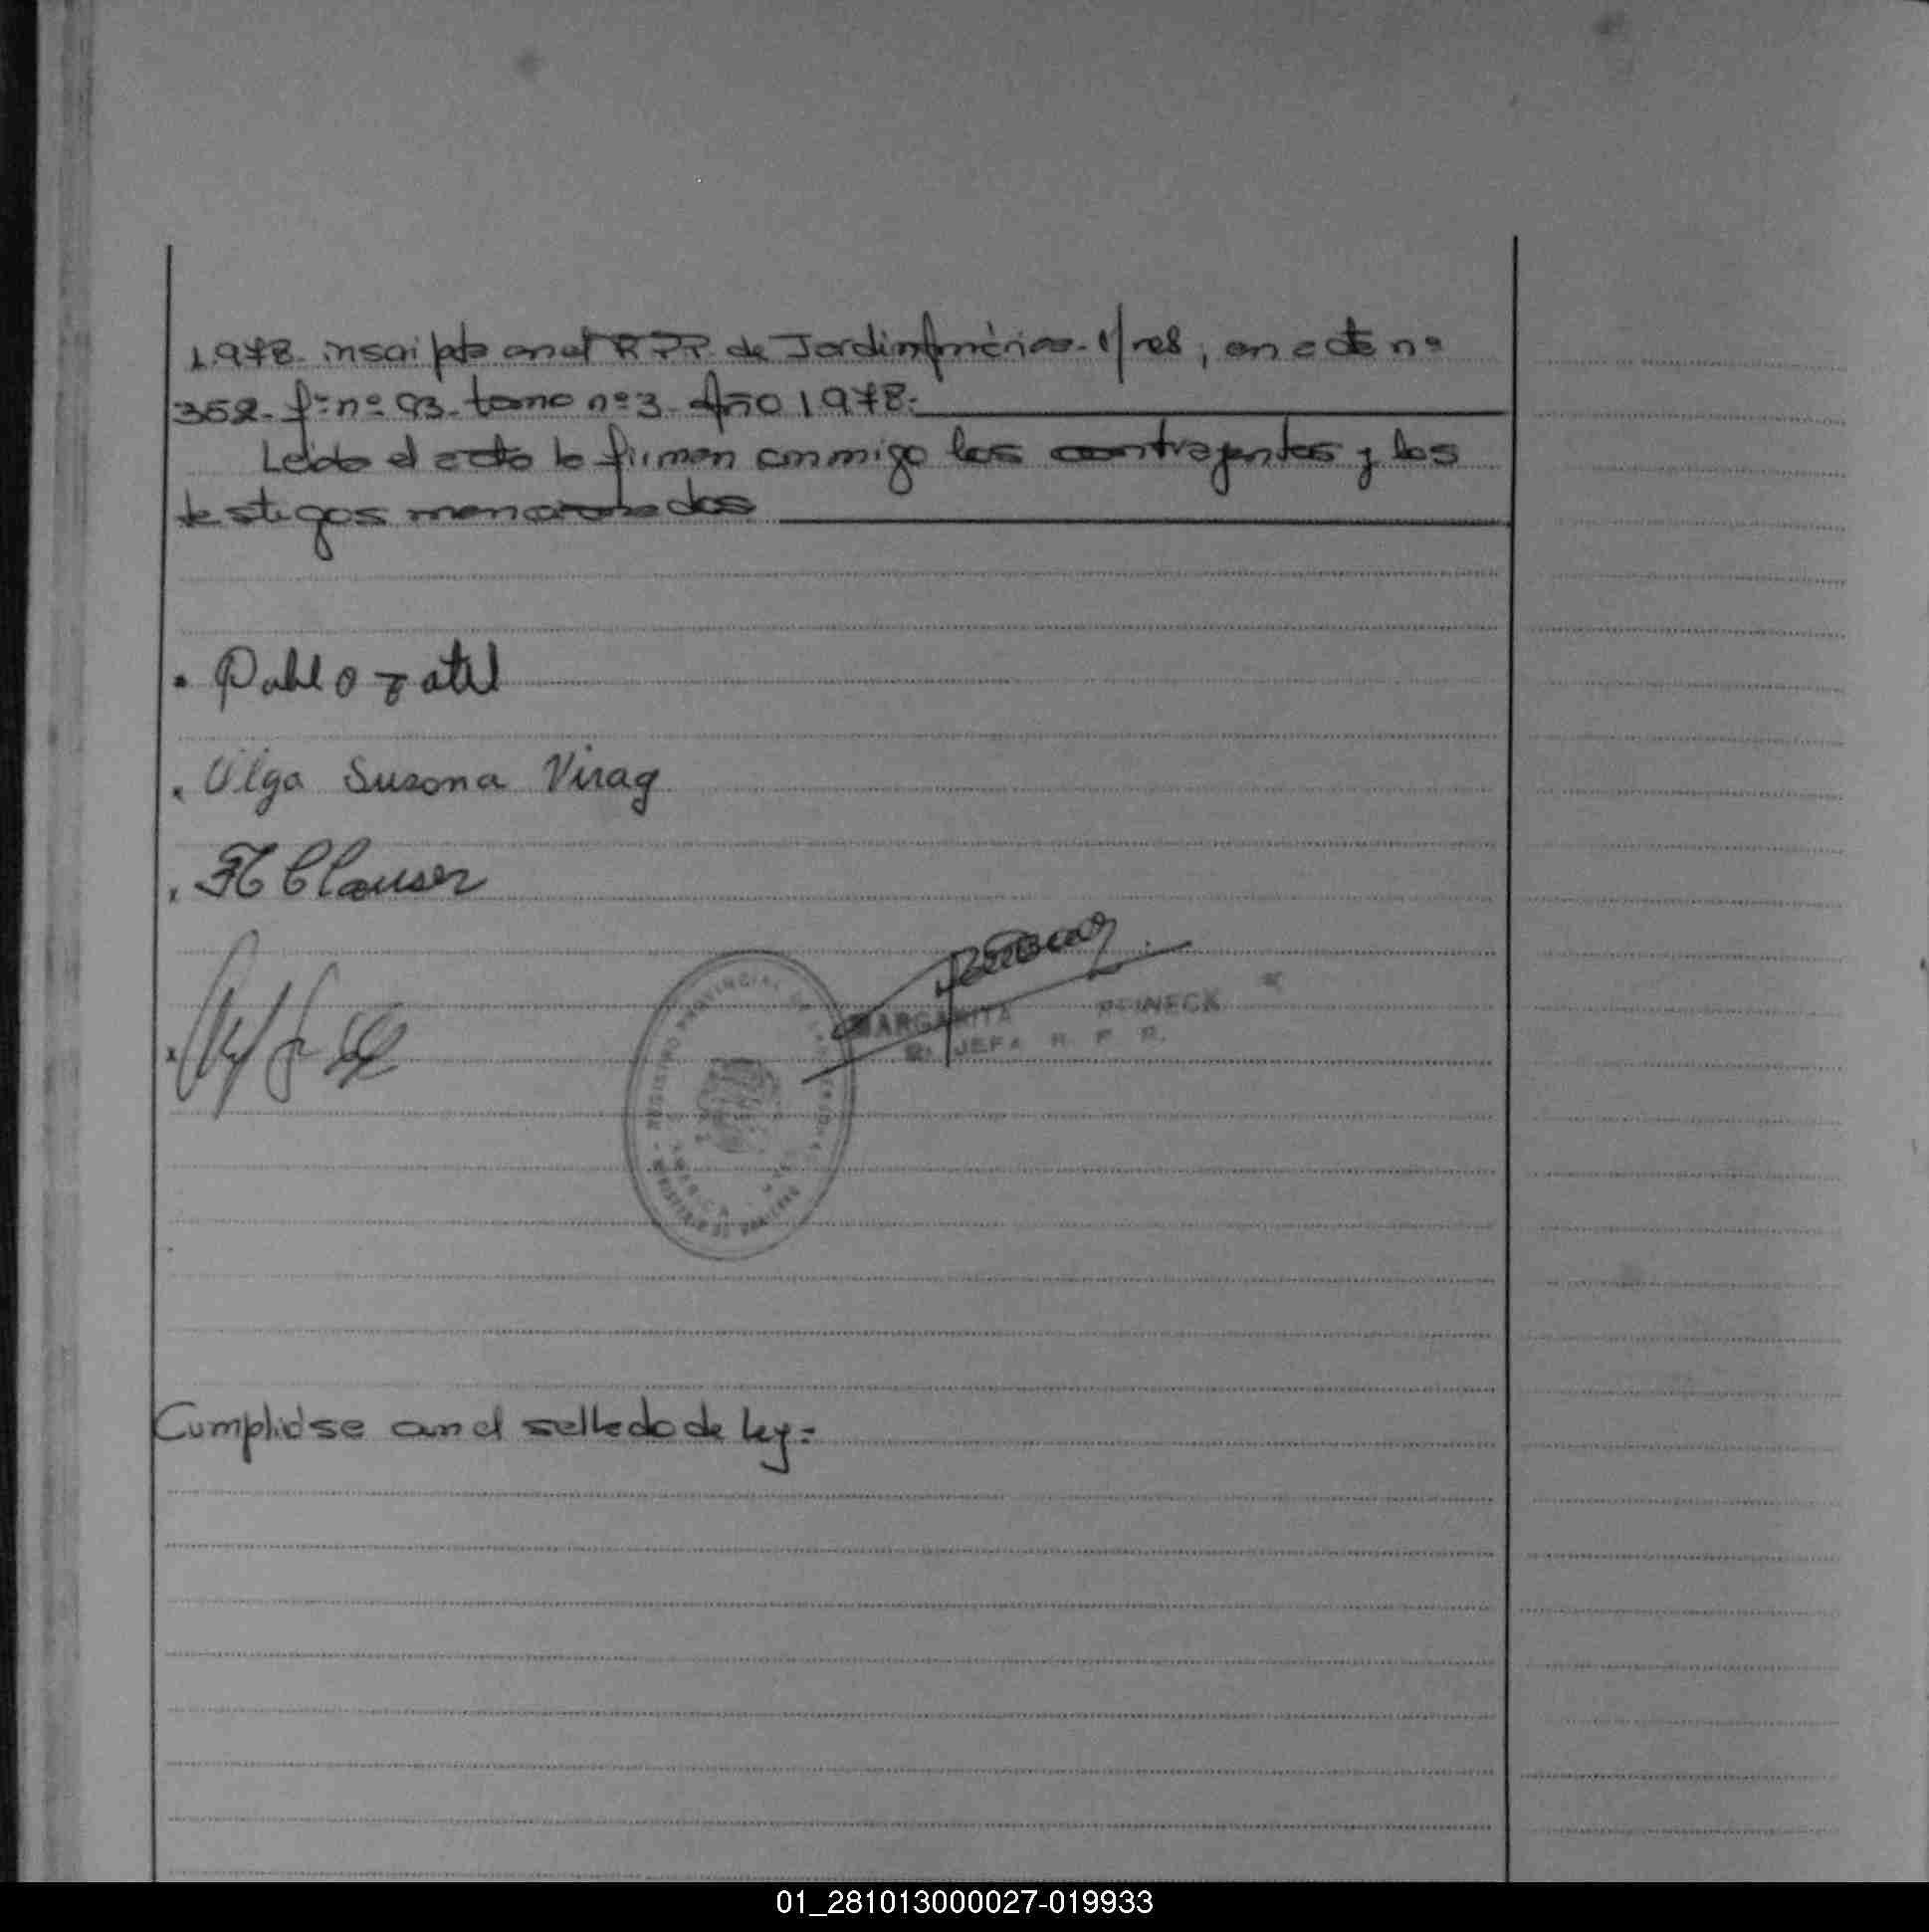 1.978. inscripto en el R.P.P. de Jardín América. M/nes, en acta nº
352. fº nº 93. tomo nº 3. Año 1978.
Leída el acta la firman conmigo los contrayentes y los
testigos mencionados
Pablo zatil
Olga Susana Virag
Clauser
MARGARITA REINECK
JEFA R. P. P.
REGISTRO PROVINCIAL DE LAS PERSONAS
MINISTERIO DE GOBIERNO
Cumplidse con el sellado de ley=
01_281013000027-019933